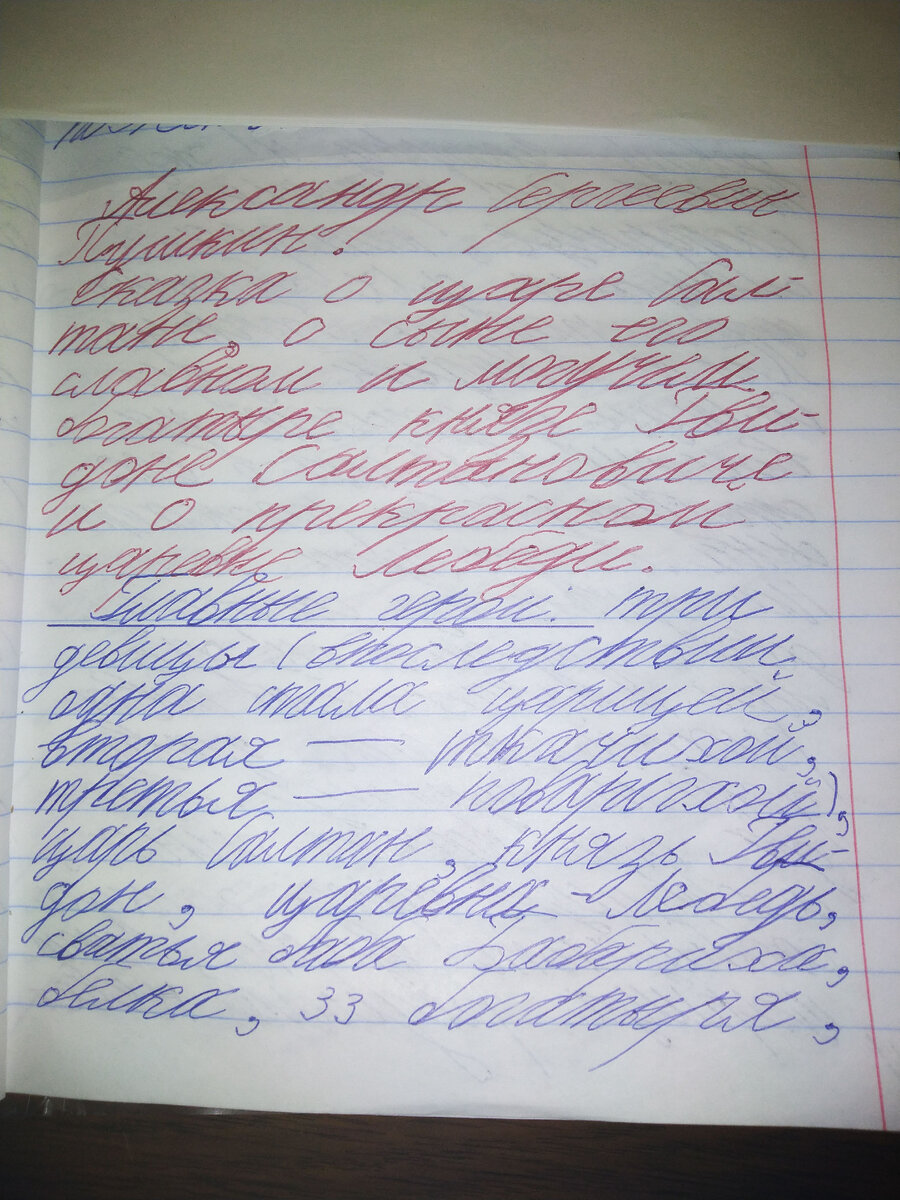 Александр Сергеевич
Пушкин.
Сказка о царе Сал-
тане, о сыне его
славном и могучем
богатыре князе Гви-
доне Салтановиче
и о прекрасной
царевне Лебеди.
Главные герои: три
девицы (впоследствии
одна стала царицей,
вторая — ткачихой,
третья — поварихой),
царь Салтан, князь Гви-
дон, царевна-Лебедь,
сватья баба Бабариха,
белка, 33 богатыря,